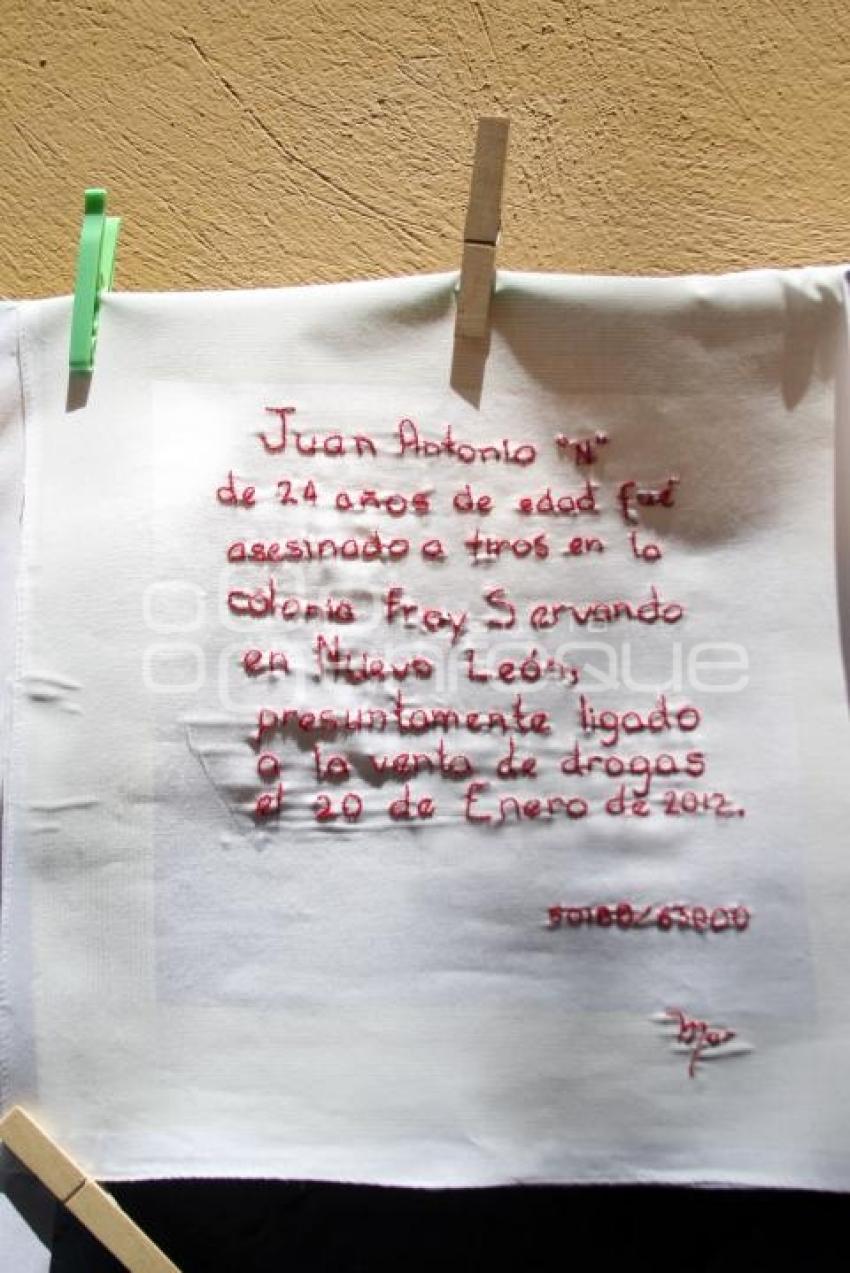 Juan Antonio "N"
de 24 años de edad fué
asesinado a tiros en la
colonia Fray Servando
en Nuevo León,
presuntamente ligado
a la venta de drogas
el 20 de Enero de 2012.